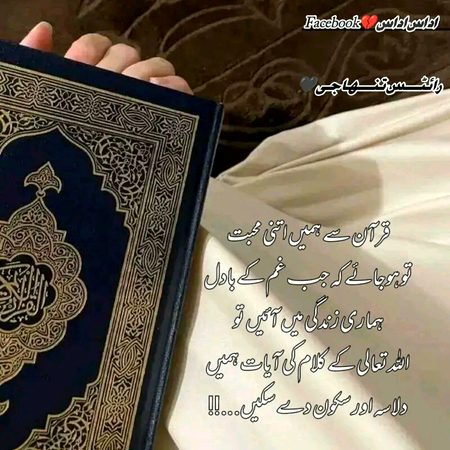 اداس اداس💔Facebook
رائٹس تنہا جی🖤
قرآن سے ہمیں اتنی محبت
تو ہوجائے کہ جب غم کے بادل
ہماری زندگی میں آئیں تو
اللہ تعالی کے کلام کی آیات ہمیں
دلاسہ اور سکون دے سکیں...!!
القرآن الكريم